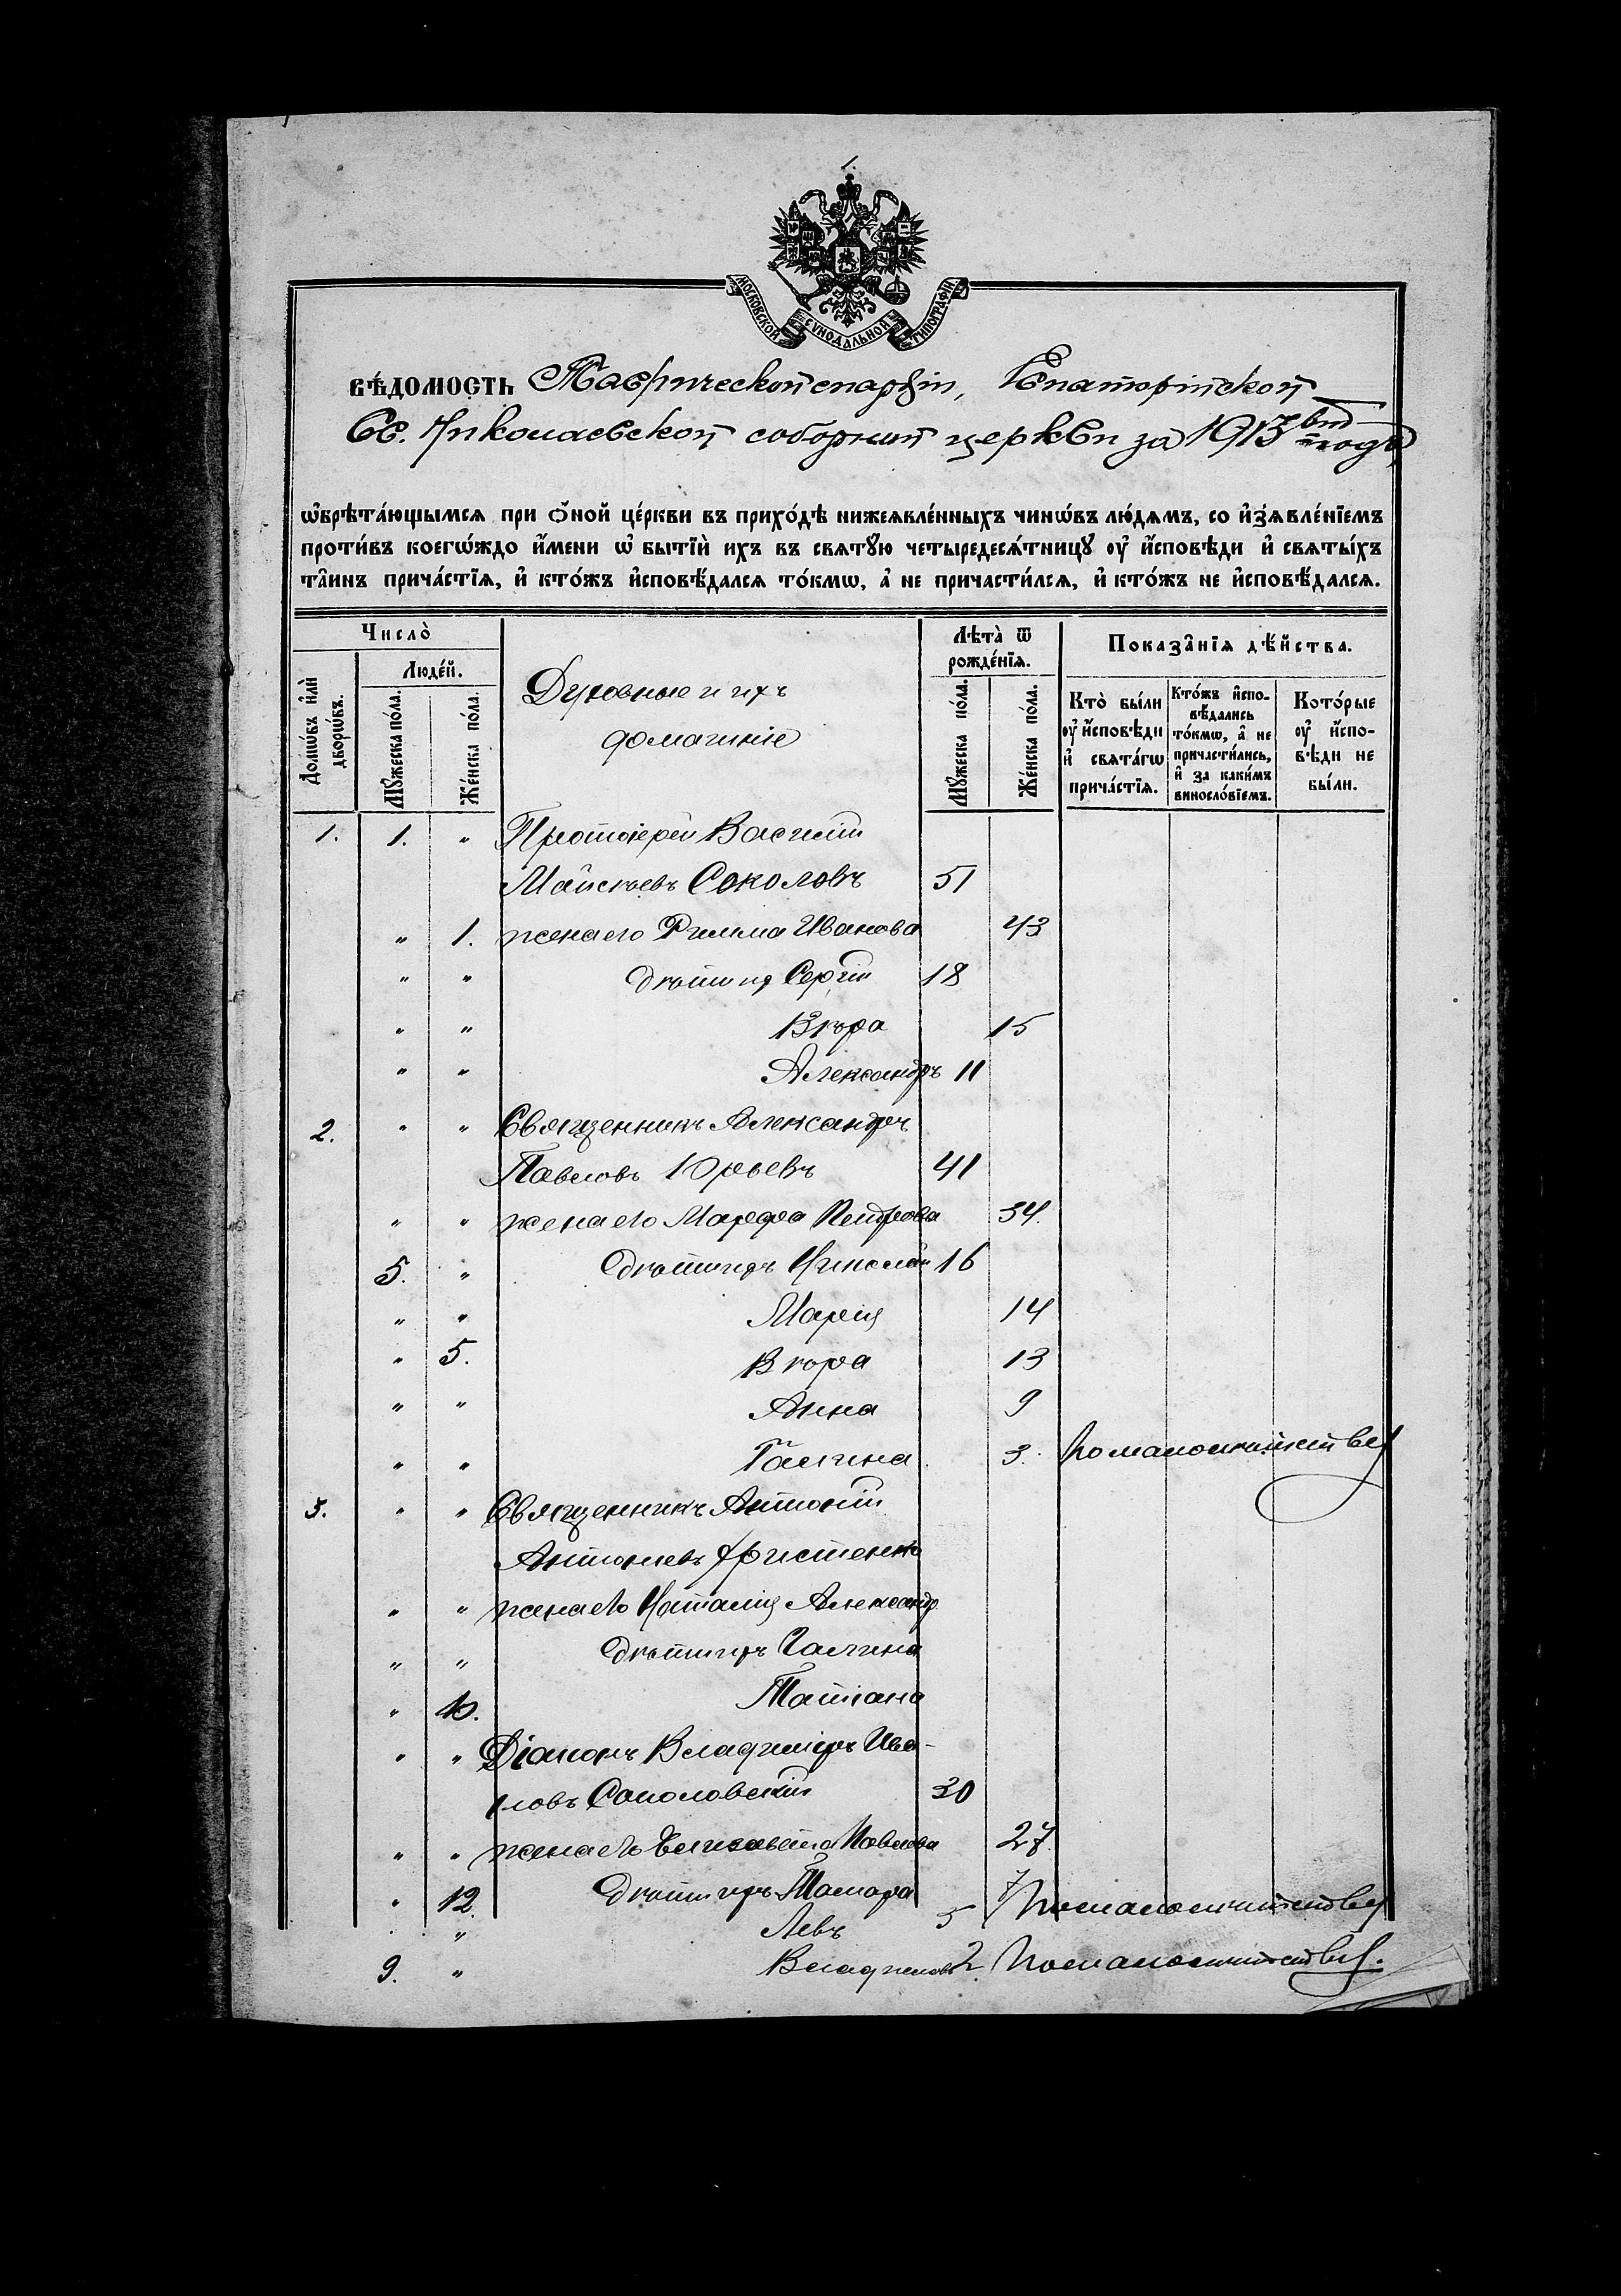 1.
МОСКОВСКОЙ СУНОДАЛЬНОЙ ТИПОГРАФІИ
ВѢ́ДОМОСТЬ Таврической епархіи, Евпаторійской
Св. Николаевской соборной церкви за 1913 годъ
ѡ҆брѣта́ющымсѧ при ѻ҆́ной це́ркви въ прихо́дѣ нижеѧвле́нныхъ чинѡ́въ лю́дѧмъ, со и҆з̾ѧвле́нїемъ
проти́въ коегѡ́ждо и҆́мени ѡ҆ бытїѝ ихъ въ свѧтꙋ́ю четыредесѧ́тницꙋ ᲂу҆ и҆́сповѣди и҆ свѧты́хъ
та̑инъ прича́стїѧ, и҆ кто́жъ и҆сповѣ́дался то́кмѡ, а҆ не причасти́лсѧ, и҆ кто́жъ не и҆сповѣ́далсѧ.
Число̀
Людє́й.
Домѡ́въ и҆лѝ дворѡ́въ.
Мꙋ́жеска по́ла.
Же́нска по́ла.
Духовные и ихъ
домашніе
Лѣта̀ ѿ рожде́нїѧ.
Мꙋ́жеска по́ла.
Же́нска по́ла.
Показа̑нїѧ дѣ́йства.
Кто̀ бы́ли ᲂу҆ и҆́сповѣди и҆ свѧта́гѡ прича́стїѧ.
Кто́жъ и҆спо- вѣ́дались то́кмѡ, а҆ не причасти́лись, и҆ за каки́мъ виносло́вїемъ.
Кото́рые ᲂу҆ и҆́спо- вѣди не бы́ли.
1. 1. " Протоіерей Василій
Моисеевъ Соколовъ 51
" 1. жена его Римма Иванова 43
" " дѣти ихъ Сергій 18
" " Вѣра 15
" " Александръ 11
2. " " Священникъ Александръ
Павловъ Юрьевъ 41
" " жена его Марфа Петрова 34.
5. " дѣти ихъ Николай 16
" " Марія 14
" 5. Вѣра 13
" " Анна 9
" " Галина 3. По малолѣтству
3. " " Священникъ Антоній
Антоніевъ Христенко
" " жена его Наталія Александр
" " дѣти ихъ Галина
" 10. Татіана
" " Діаконъ Владиміръ Ива-
новъ Соколовскій 30
" " жена его Елизавета Павлова 27.
" 12 дѣти ихъ Тамара 7 По малолѣтству
" Левъ 5
9. " Владиміръ 2 По малолѣтству.